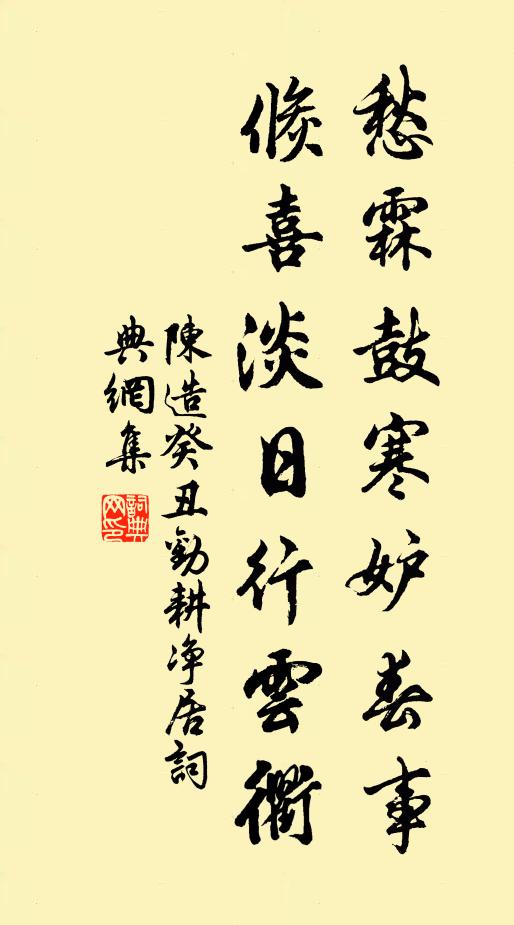 愁霖鼓寒妒春事
倏喜淡日行雲衢
陳造癸丑勸耕净居詞
典網集
詞典
网印